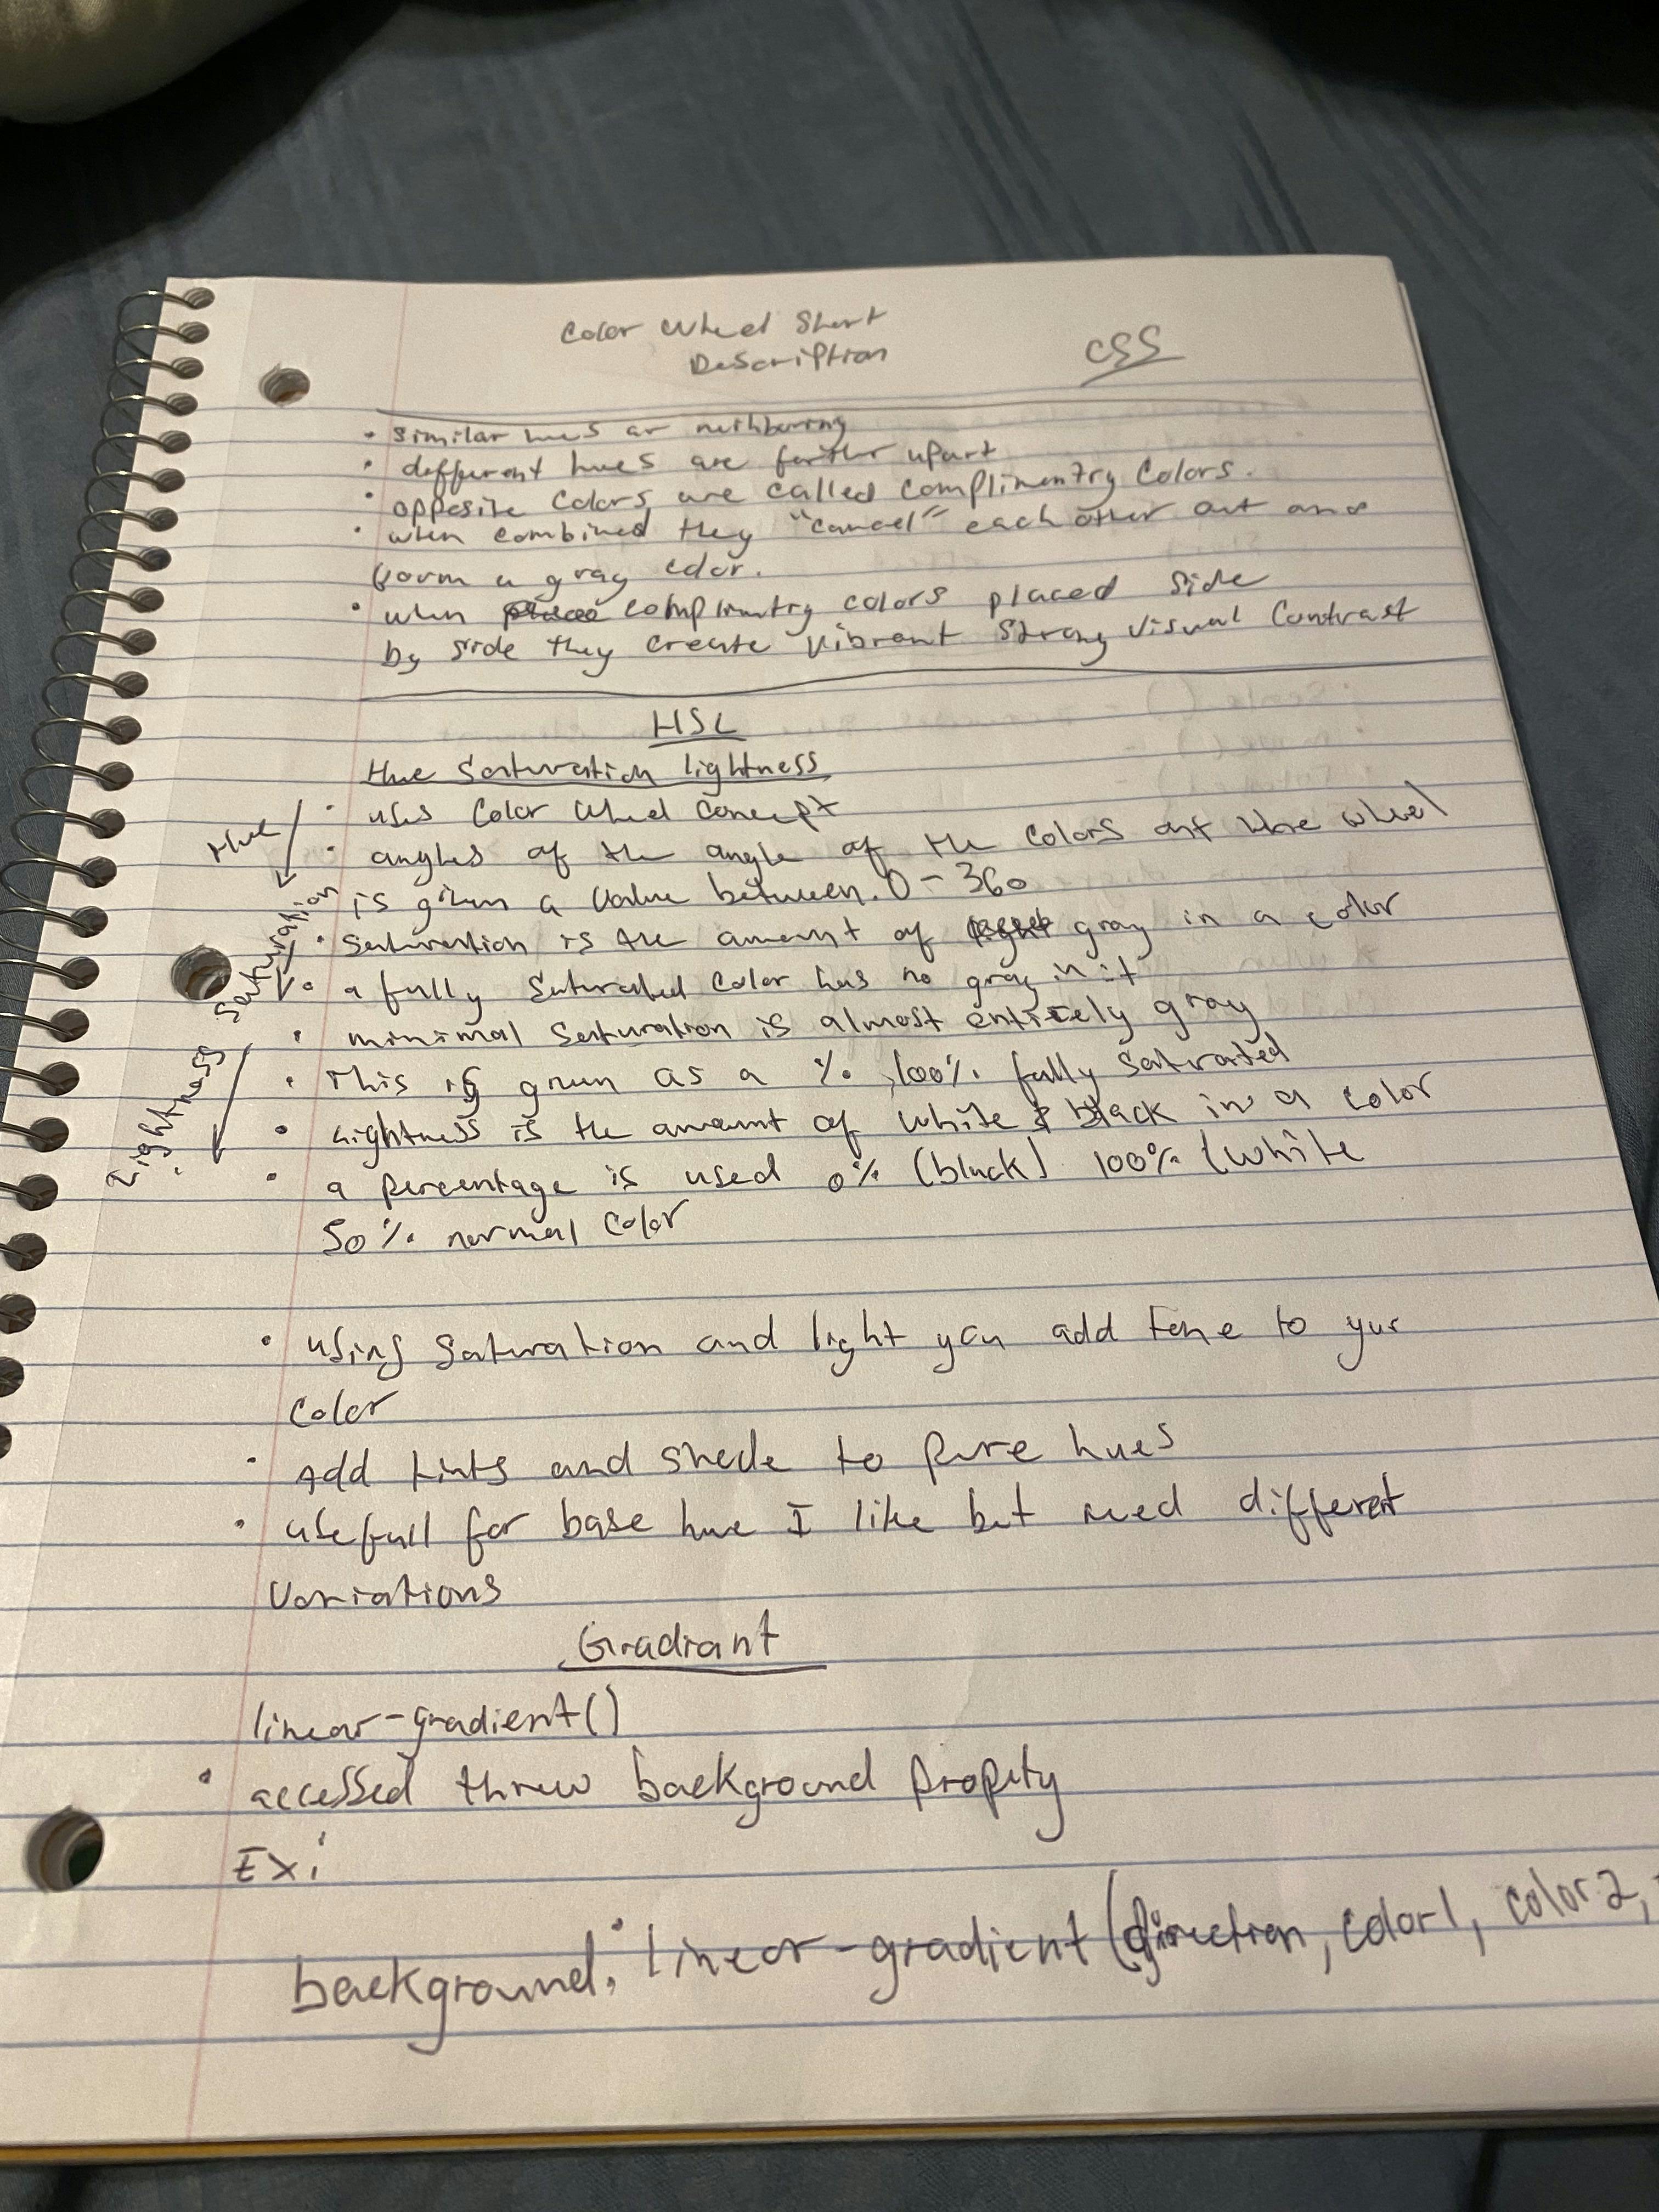 Color Wheel Short
Description
CSS
• similar hues ar neithboring
• different hues are farther apart
• opposite colors are called complimentry colors.
• when combined they "cancel" each other out and
form a gray color.
• when complimtry colors placed side
by side they create vibrant strong visual contrast
HSL
Hue Saturation lightness
Hue
• uses Color Wheel Concept
• angles of the angle of the colors on the wheel
is given a value between. 0 - 360
Saturation
• Saturation is the amount of gray in a color
• a fully Saturated Color has no gray in it
• minimal Saturation is almost entirely gray
• This is given as a % 100% fully saturated
Lightness
• Lightness is the amount of white & black in a color
• a percentage is used 0% (black) 100% (white
50% normal color
• using Saturation and light you add tone to your
Color
• Add tints and shade to pure hues
• usefull for base hue I like but need different
Variations
Gradiant
linear-gradient()
• accessed threw background propety
Ex:
background: linear-gradient(direction, color1, color2,